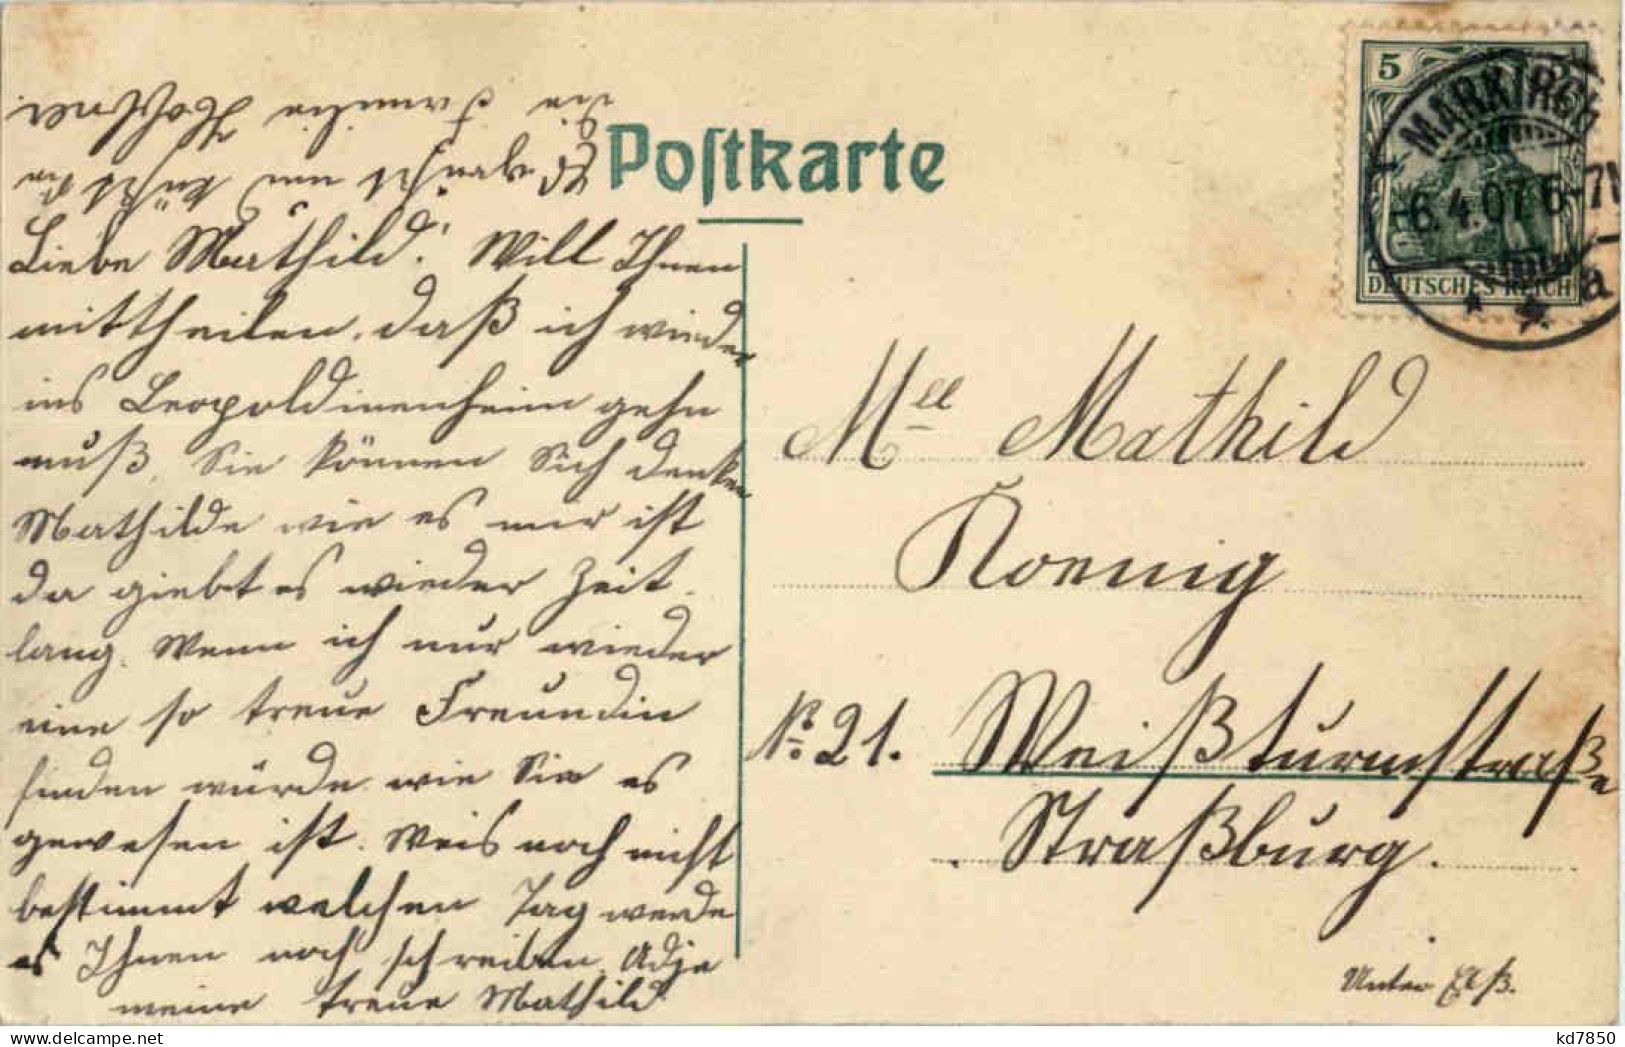 Postkarte
5
MARKIRCH
6.4.07.6-7N
a
DEUTSCHES REICH
Liebe Mathild! Will Ihnen
mittheilen, daß ich wieder
ins Leopoldinenheim gehn
muß, Sie können Sich denken
Mathilde wie es mir ist
da giebt es wieder Zeit
lang. Wenn ich nur wieder
eine so treue Freundin
finden würde wie Sie es
gewesen ist. Weis noch nicht
bestimmt welchen Tag werde
es Ihnen noch schreiben. Adje
meine treue Mathild
Es grüßt und küßt Sie
die Familie
Mell Mathild
Koenig
No 21. Weißturmstraße
Straßburg.
Unter Elß.
kd7850